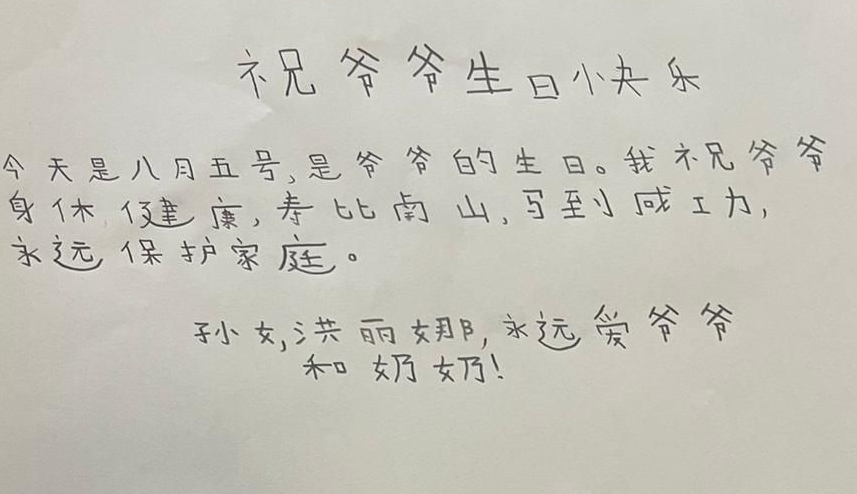 祝爷爷生日快乐
今天是八月五号,是爷爷的生日。我祝爷爷
身休健康,寿比南山,马到成工力,
永远保护家庭。
孙女,洪丽娜,永远爱爷爷
和奶奶!